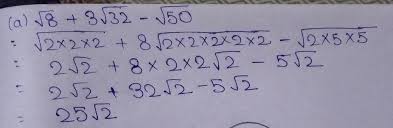 (a) √8 + 3√32 - √50
= √2×2×2 + 8√2×2×2×2×2 - √2×5×5
= 2√2 + 8×2×2√2 - 5√2
= 2√2 + 32√2 - 5√2
= 25√2